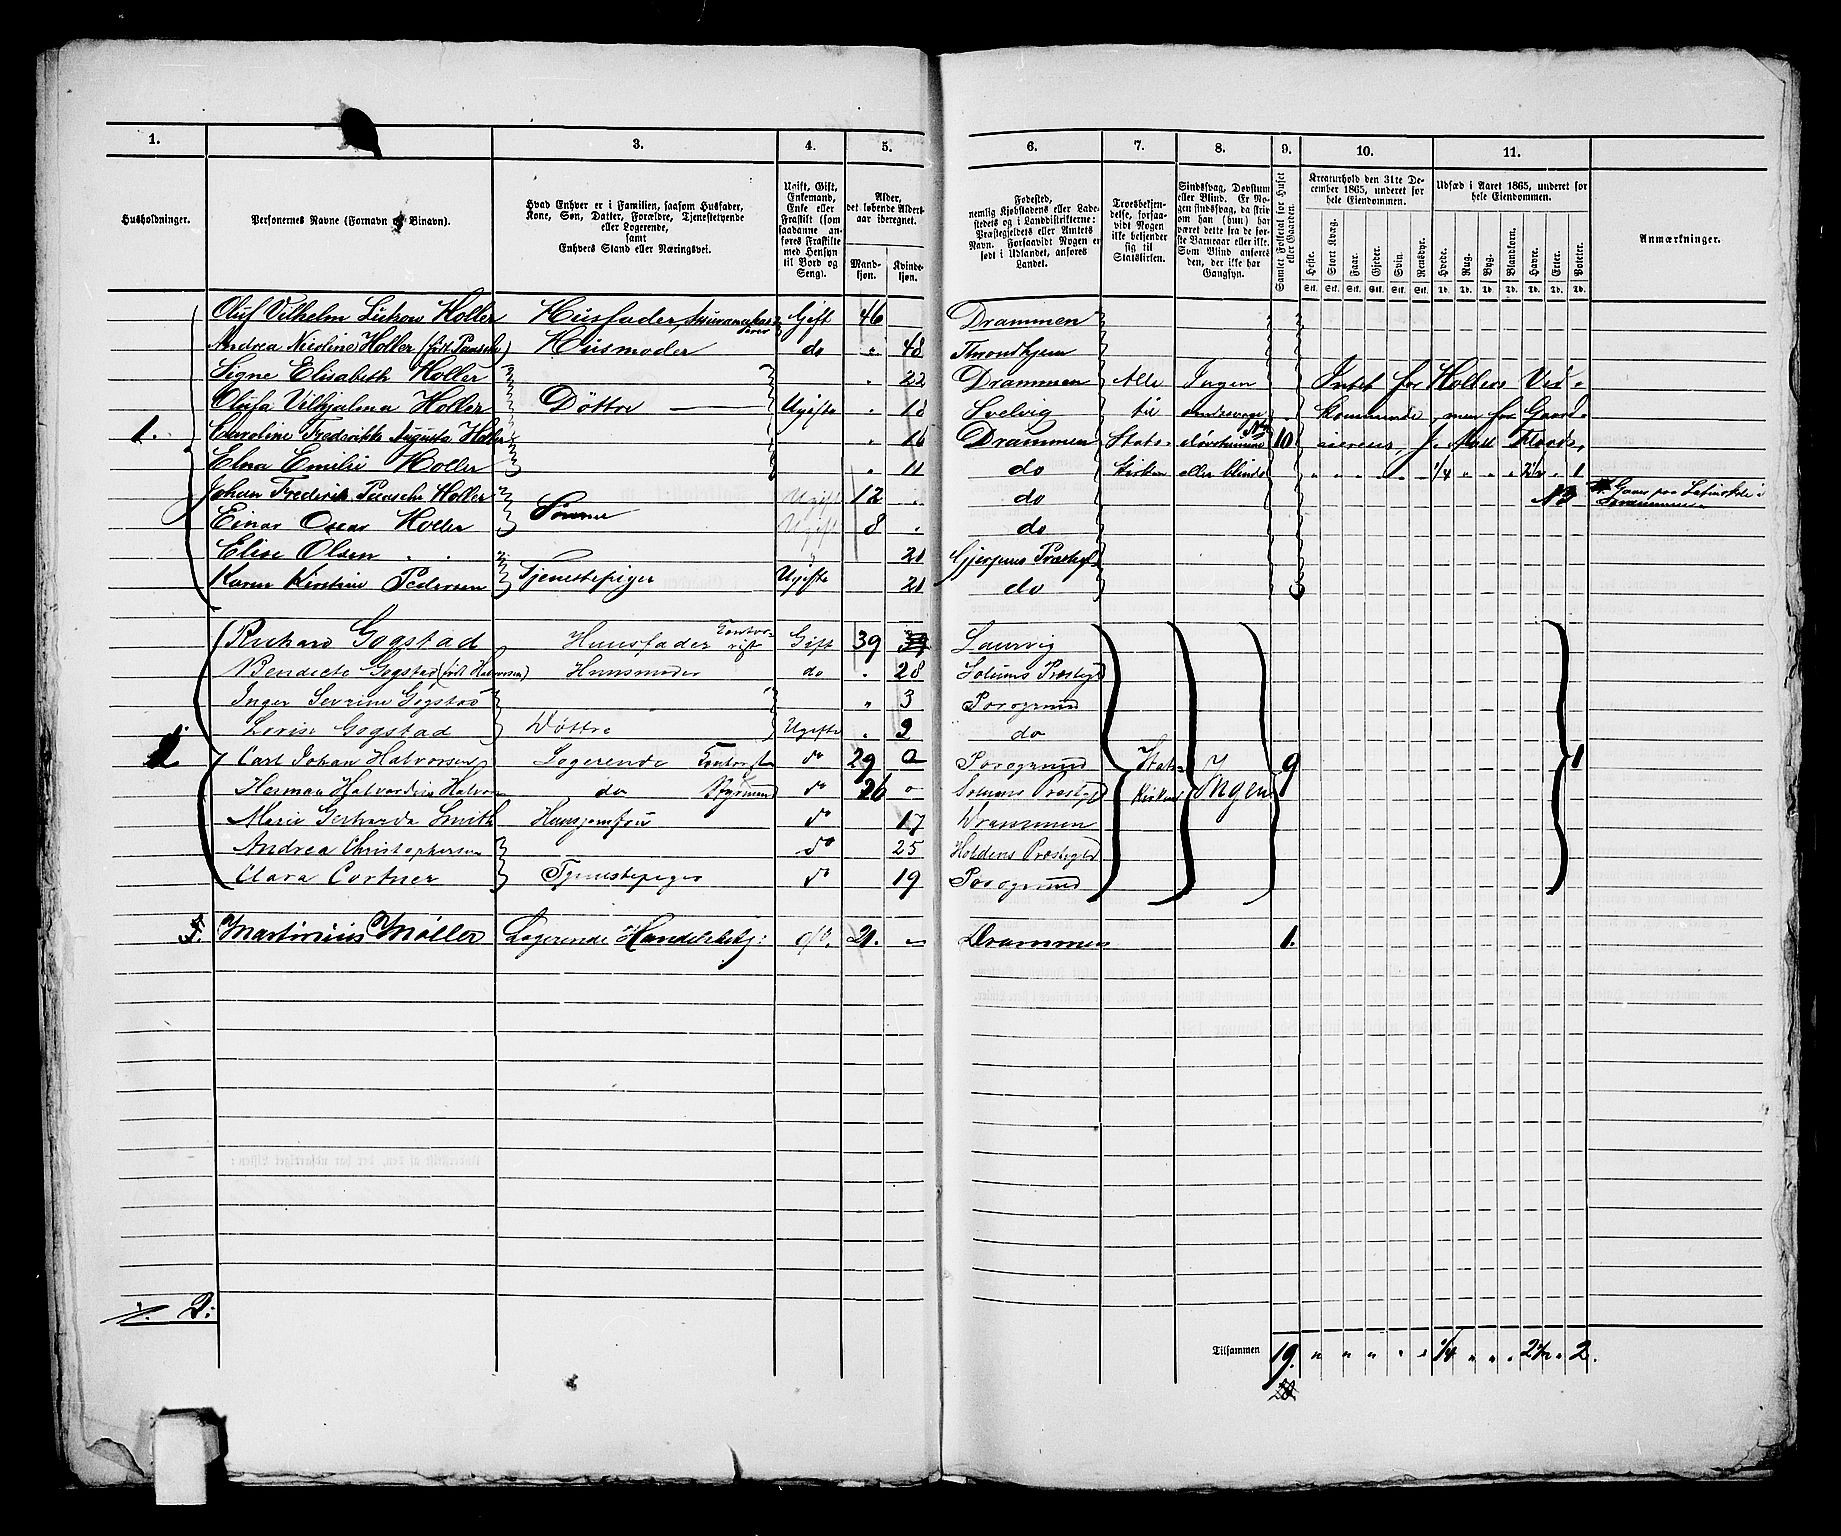 1. 3. 4. 5. 6. 7. 8. 9. 10. 11.
Husholdninger.
Personernes Navne (Fornavn og Binavn).
Hvad Enhver er i Familien, saasom Husfader, Kone, Søn, Datter, Forældre, Tjenestetyende eller Logerende, samt Enhvers Stand eller Næringsvei.
Ugift, Gift, Enkemand, Enke eller Fraskilt (som saadanne anføres Fraskilte med Hensyn til Bord og Seng).
Alder, det løbende Alders-aar iberegnet.
Mand-kjøn. Kvinde-kjøn.
Fødested, nemlig Kjøbstadens eller Ladestedets og i Landdistrikterne: Præstegjeldets eller Amtets Navn. Forsaavidt Nogen er født i Udlandet, anføres Landet.
Troesbekjendelse, forsaavidt Nogen ikke bekjender sig til Statskirken.
Sindssvag, Døvstum eller Blind. Er Nogen sindssvag, da skrives om han (hun) har været dette fra de første Barneaar eller ikke. Som Blind anføres den, der ikke har Gangsyn.
Samlet Folketal for Huset eller Gaarden.
Kreaturhold den 31te December 1865, underet for hele Eiendommen.
Heste. Stort Kvæg. Faar. Gjeder. Svin. Rensdyr.
Stk. Stk. Stk. Stk. Stk. Stk.
Udsæd i Aaret 1865, underet for hele Eiendommen.
Hvede. Rug. Byg. Blandkorn. Havre. Erter. Poteter.
Td. Td. Td. Td. Td. Td. Td.
Anmærkninger.
Oluf Vilhelm Holler Husfader Gift 46 Drammen
Andrea Nicoline Holler (født Paasche) Husmoder do " 48 Trondhjem
Signe Elisabeth Holler " 22 Drammen Alle Ingen Intet for Hollers Ved-
Olufa Vilhjalma Holler Døttre Ugifte " 18 Svelvig til kommende men for Gaard-
1. Caroline Frederikke Augusta Holler " 16 Drammen Stats- 10
Elna Emilie Holler " 11 do kirken eller blinde " " " " " " 1/4 " " " 2 1/2 " 1
Johan Frederik Paasche Holler Ugift 12 " do
Einar Oscar Holler Sønner Ugift 8 " do
Elise Olsen " 21 Gjerpens Præstegj
Karen Kirstine Pedersen Tjenestepiger Ugifte 21 do
Richard Gogstad Huusfader Gift 39 Laurvig
Bendicte Gogstad (født Halvorsen) Huusmoder do " 28 Solums Præstegd
Inger Sevrine Gogstad " 3 Porsgrund
Lovise Gogstad Døttre Ugifte " 2 do
Carl Johan Halvorsen Logerende Contorist do 29 Porsgrund Stats- 9 1
Herman Halvor do do 26 Solums Præstegd kirken Ingen
Marie Gerharda Smith Huusjomfru do 17 Drammen
Andrea Christophersen do 25 Holdens Præstegld
Clara Cortner Tjenestepiger do 19 Porsgrund
Martinius Møller Logerende do. 21. Drammen 1.
2:
Tilsammen 19. " " " " " 1/4 " " " 2 1/2 " 2.
20